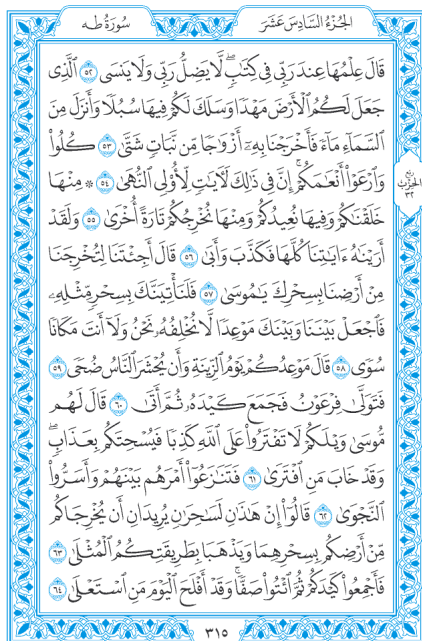 سُورَةُ طه
الجُزْءُ السَّادِسَ عَشَرَ
قَالَ عِلْمُهَا عِندَ رَبِّي فِي كِتَٰبٖۖ لَّا يَضِلُّ رَبِّي وَلَا يَنسَى ٥٢ ٱلَّذِي
جَعَلَ لَكُمُ ٱلۡأَرۡضَ مَهۡدٗا وَسَلَكَ لَكُمۡ فِيهَا سُبُلٗا وَأَنزَلَ مِنَ
ٱلسَّمَآءِ مَآءٗ فَأَخۡرَجۡنَا بِهِۦٓ أَزۡوَٰجٗا مِّن نَّبَاتٖ شَتَّىٰ ٥٣ كُلُواْ
وَٱرۡعَوۡاْ أَنۡعَٰمَكُمۡۚ إِنَّ فِي ذَٰلِكَ لَأٓيَٰتٖ لِّأُوْلِي ٱلنُّهَىٰ ٥٤ ۞ مِنۡهَا
خَلَقۡنَٰكُمۡ وَفِيهَا نُعِيدُكُمۡ وَمِنۡهَا نُخۡرِجُكُمۡ تَارَةً أُخۡرَىٰ ٥٥ وَلَقَدۡ
أَرَيۡنَٰهُ ءَايَٰتِنَا كُلَّهَا فَكَذَّبَ وَأَبَىٰ ٥٦ قَالَ أَجِئۡتَنَا لِتُخۡرِجَنَا
مِنۡ أَرۡضِنَا بِسِحۡرِكَ يَٰمُوسَىٰ ٥٧ فَلَنَأۡتِيَنَّكَ بِسِحۡرٖ مِّثۡلِهِۦ
فَٱجۡعَلۡ بَيۡنَنَا وَبَيۡنَكَ مَوۡعِدٗا لَّا نُخۡلِفُهُۥ نَحۡنُ وَلَآ أَنتَ مَكَانٗا
سُوٗى ٥٨ قَالَ مَوۡعِدُكُمۡ يَوۡمُ ٱلزِّينَةِ وَأَن يُحۡشَرَ ٱلنَّاسُ ضُحٗى ٥٩
فَتَوَلَّىٰ فِرۡعَوۡنُ فَجَمَعَ كَيۡدَهُۥ ثُمَّ أَتَىٰ ٦٠ قَالَ لَهُم
مُّوسَىٰ وَيۡلَكُمۡ لَا تَفۡتَرُواْ عَلَى ٱللَّهِ كَذِبٗا فَيُسۡحِتَكُم بِعَذَابٖۖ
وَقَدۡ خَابَ مَنِ ٱفۡتَرَىٰ ٦١ فَتَنَٰزَعُوٓاْ أَمۡرَهُم بَيۡنَهُمۡ وَأَسَرُّواْ
ٱلنَّجۡوَىٰ ٦٢ قَالُوٓاْ إِنۡ هَٰذَٰنِ لَسَٰحِرَٰنِ يُرِيدَانِ أَن يُخۡرِجَاكُم
مِّنۡ أَرۡضِكُم بِسِحۡرِهِمَا وَيَذۡهَبَا بِطَرِيقَتِكُمُ ٱلۡمُثۡلَىٰ ٦٣
فَأَجۡمِعُواْ كَيۡدَكُمۡ ثُمَّ ٱئۡتُواْ صَفّٗاۚ وَقَدۡ أَفۡلَحَ ٱلۡيَوۡمَ مَنِ ٱسۡتَعۡلَىٰ ٦٤
ربع
الحزب
٣٢
٣١٥